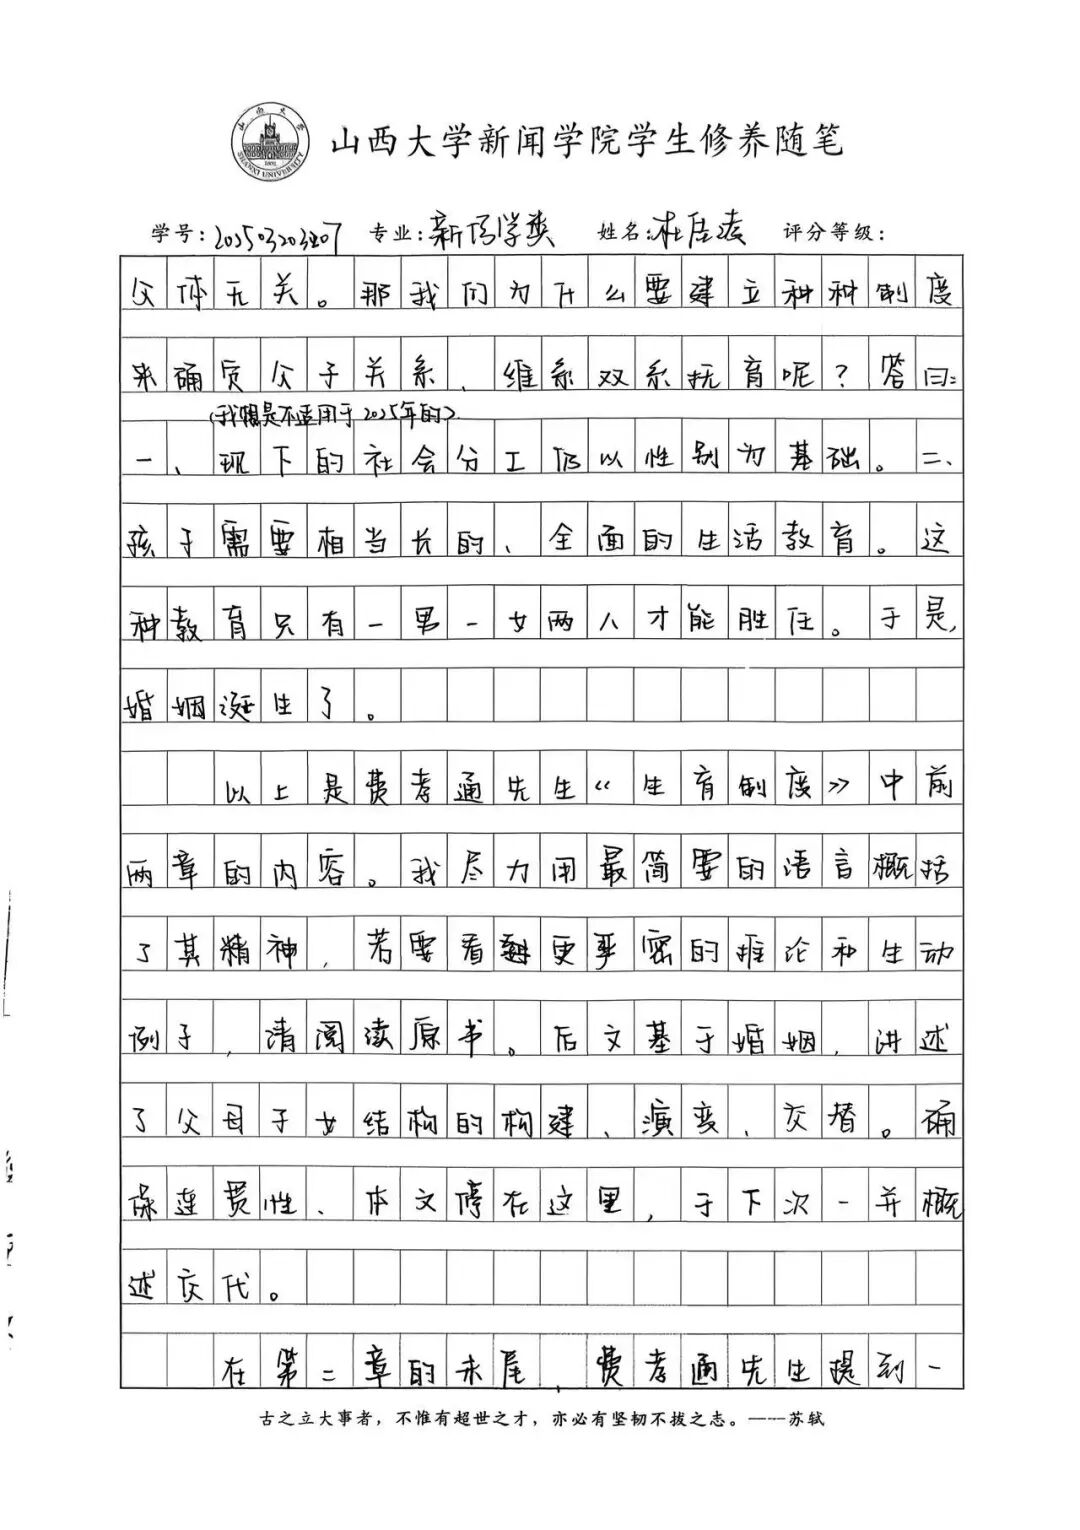 山西大学新闻学院学生修养随笔
学号: 专业:新传学类 姓名: 评分等级:
父体无关。那我们为什么要建立种种制度
来确定父子关系、维系双系抚育呢?答曰:
(我想是不适用于2025年的)
一、现下的社会分工仍以性别为基础。二、
孩子需要相当长的、全面的生活教育。这
种教育只有一男一女两人才能胜任。于是,
婚姻诞生了。
以上是费孝通先生《生育制度》中前
两章的内容。我尽力用最简要的语言概括
了其精神,若要看到更严密的推论和生动
例子,请阅读原书。后文基于婚姻,讲述
了父母子女结构的构建、演变、交替。确
保连贯性、本文停在这里,于下次一并概
述交代。
在第二章的末尾,费孝通先生提到一
古之立大事者,不惟有超世之才,亦必有坚韧不拔之志。——苏轼